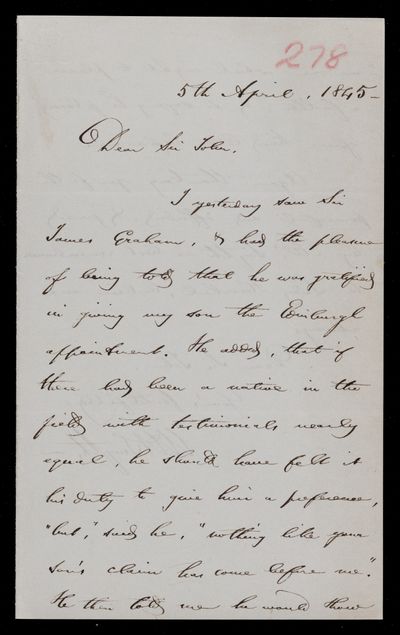 278
5th April, 1845-
Dear Sir John,
I yesterday saw Sir
James Graham, & had the pleasure
of being told that he was gratified
in giving my son the Edinburgh
appointment. He added, that if
there had been a native in the
field with testimonials nearly
equal, he should have felt it
his duty to give him a preference,
"but," said he, "nothing like your
son's claim has come before me."
He then told me he would show